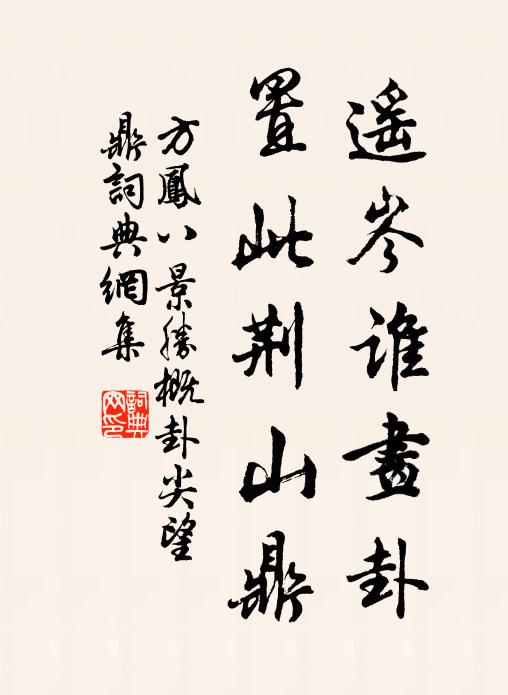 遥岑谁畫卦
置此荆山鼎
方鳳八景勝概卦尖望
鼎詞典網集
詞典
网印